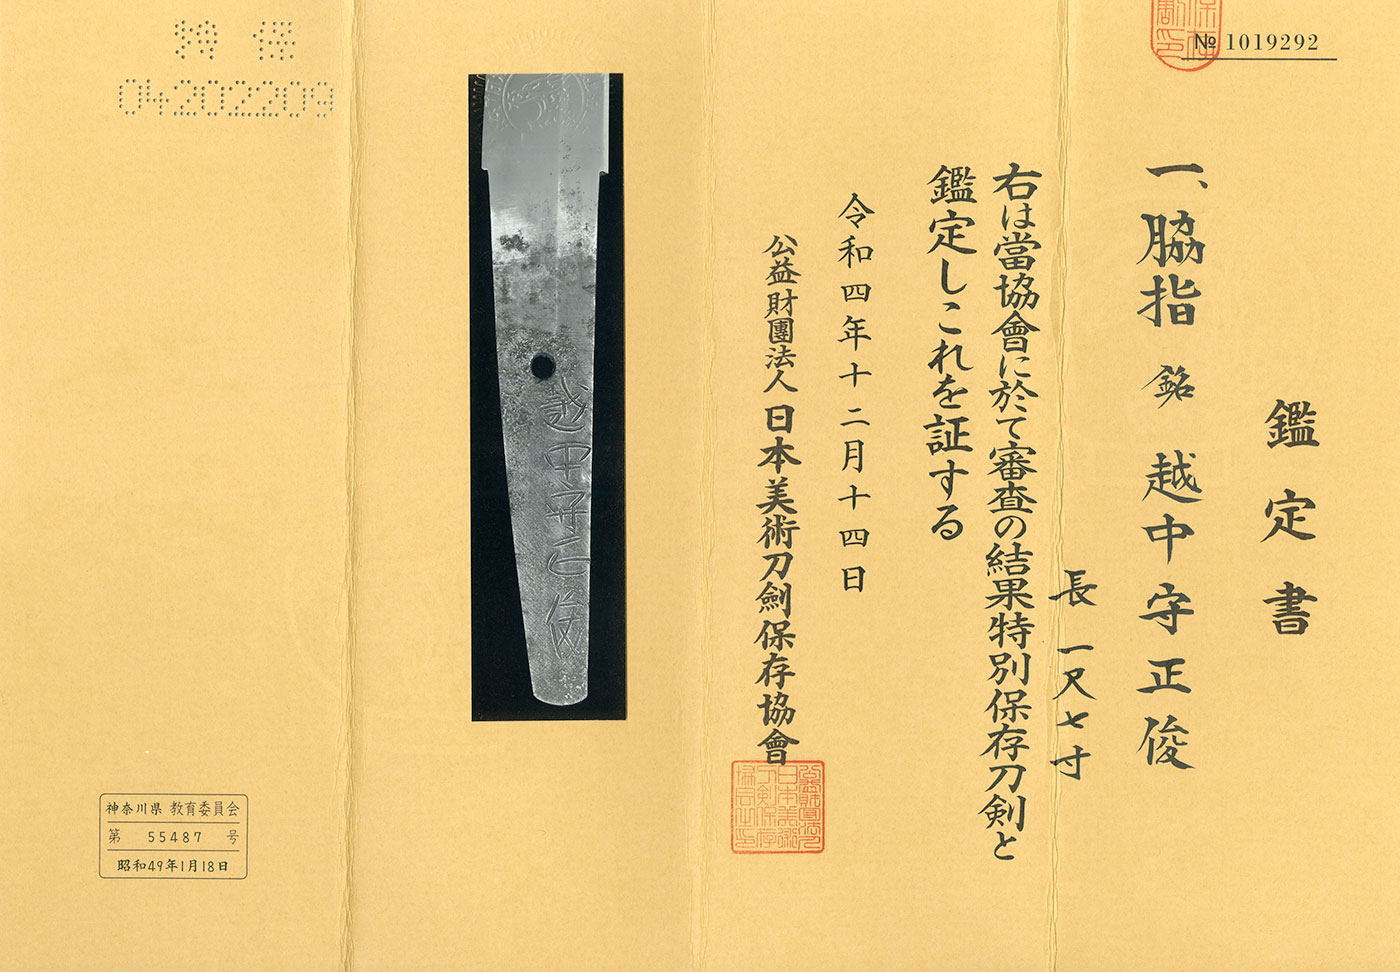 № 1019292
鑑定書
一、脇指 銘 越中守正俊
長 一尺七寸
右は當協會に於て審査の結果特別保存刀剣と
鑑定しこれを証する
令和四年十二月十四日
公益財團法人 日本美術刀劍保存協會
越中守正俊
特 保
04202209
神奈川県 教育委員会
第 55487 号
昭和49年1月18日